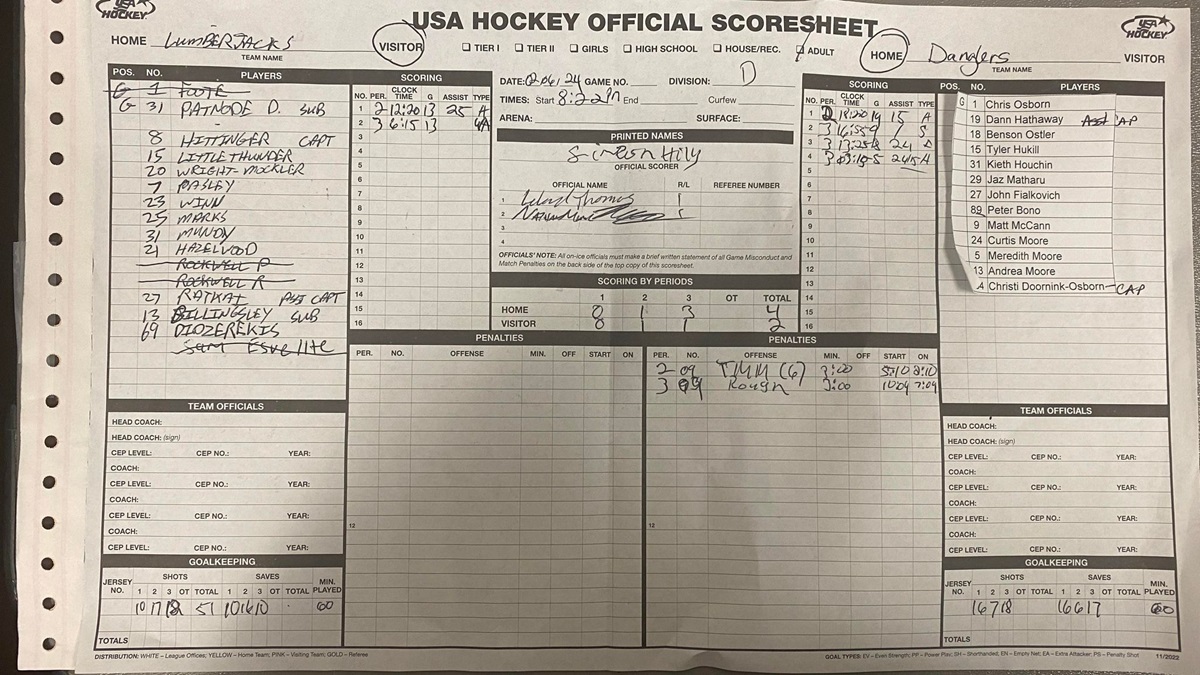 USA HOCKEY
USA HOCKEY OFFICIAL SCORESHEET
USA HOCKEY
HOME LUMBERJACKS
TEAM NAME
VISITOR
TIER I TIER II GIRLS HIGH SCHOOL HOUSE/REC. ADULT
HOME Danglers
TEAM NAME
VISITOR
POS. NO. PLAYERS
G 1 FOOTE
G 31 PATNODE D. SUB
8 HITTINGER CAPT
15 LITTLETHUNDER
20 WRIGHT-MOCKLER
7 PASLEY
23 WINN
25 MARKS
31 MUNDY
21 HAZELWOOD
ROCKWELL P
ROCKWELL R
27 RATKAI ASST CAPT
13 BILLINGSLEY SUB
69 DIOZEREKIS
Sam
SCORING
NO. PER. CLOCK TIME G ASSIST TYPE
1 2 12:20 13 25 A
2 3 6:15 13
3
4
5
6
7
8
9
10
11
12
13
14
15
16
DATE: 02/06/24 GAME NO. DIVISION: D
TIMES: Start 8:22PM End Curfew
ARENA: SURFACE:
PRINTED NAMES
OFFICIAL SCORER
OFFICIAL NAME R/L REFEREE NUMBER
1 Lloyd Thomas
2
3
4
OFFICIALS' NOTE: All on-ice officials must make a brief written statement of all Game Misconduct and
Match Penalties on the back side of the top copy of this scoresheet.
SCORING BY PERIODS
1 2 3 OT TOTAL
HOME 0 1 3 4
VISITOR 0 1 1 2
SCORING
NO. PER. CLOCK TIME G ASSIST TYPE
1 2 19 15 A
2 3 16:55 9 S
3 3 13:25 24
4 3 03:15 5 A
5
6
7
8
9
10
11
12
13
14
15
16
POS. NO. PLAYERS
G 1 Chris Osborn
19 Dann Hathaway Asst CAP
18 Benson Ostler
15 Tyler Hukill
31 Kieth Houchin
29 Jaz Matharu
27 John Fialkovich
89 Peter Bono
9 Matt McCann
24 Curtis Moore
5 Meredith Moore
13 Andrea Moore
Christi Doornink-Osborn CAP
PENALTIES
PER. NO. OFFENSE MIN. OFF START ON
12
PENALTIES
PER. NO. OFFENSE MIN. OFF START ON
2 09 TMM (6) 3:00 5:10 2:10
3 09 Rough 3:00 10:09 7:09
12
TEAM OFFICIALS
HEAD COACH:
HEAD COACH: (sign)
CEP LEVEL: CEP NO.: YEAR:
COACH:
CEP LEVEL: CEP NO.: YEAR:
COACH:
CEP LEVEL: CEP NO.: YEAR:
COACH:
CEP LEVEL: CEP NO.: YEAR:
GOALKEEPING
SHOTS SAVES
JERSEY NO. 1 2 3 OT TOTAL 1 2 3 OT TOTAL MIN. PLAYED
10 17 18 51 10 16 10 60
TOTALS
TEAM OFFICIALS
HEAD COACH:
HEAD COACH: (sign)
CEP LEVEL: CEP NO.: YEAR:
COACH:
CEP LEVEL: CEP NO.: YEAR:
COACH:
CEP LEVEL: CEP NO.: YEAR:
COACH:
CEP LEVEL: CEP NO.: YEAR:
GOALKEEPING
SHOTS SAVES
JERSEY NO. 1 2 3 OT TOTAL 1 2 3 OT TOTAL MIN. PLAYED
16 7 18 16 6 17 60
TOTALS
DISTRIBUTION: WHITE – League Offices; YELLOW – Home Team; PINK – Visiting Team; GOLD – Referee
GOAL TYPES: EV – Even Strength; PP – Power Play; SH – Shorthanded, EN – Empty Net; EA – Extra Attacker; PS – Penalty Shot 11/2022